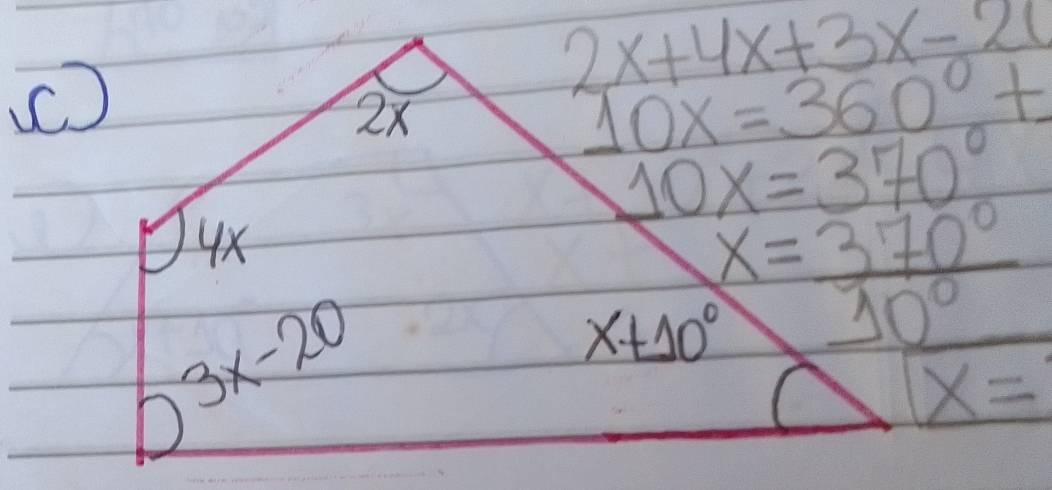 c)
2x
4x
3x-20
x+10°
2x+4x+3x-20
10x=360°+
10x=370°
x=370°
10°
x=